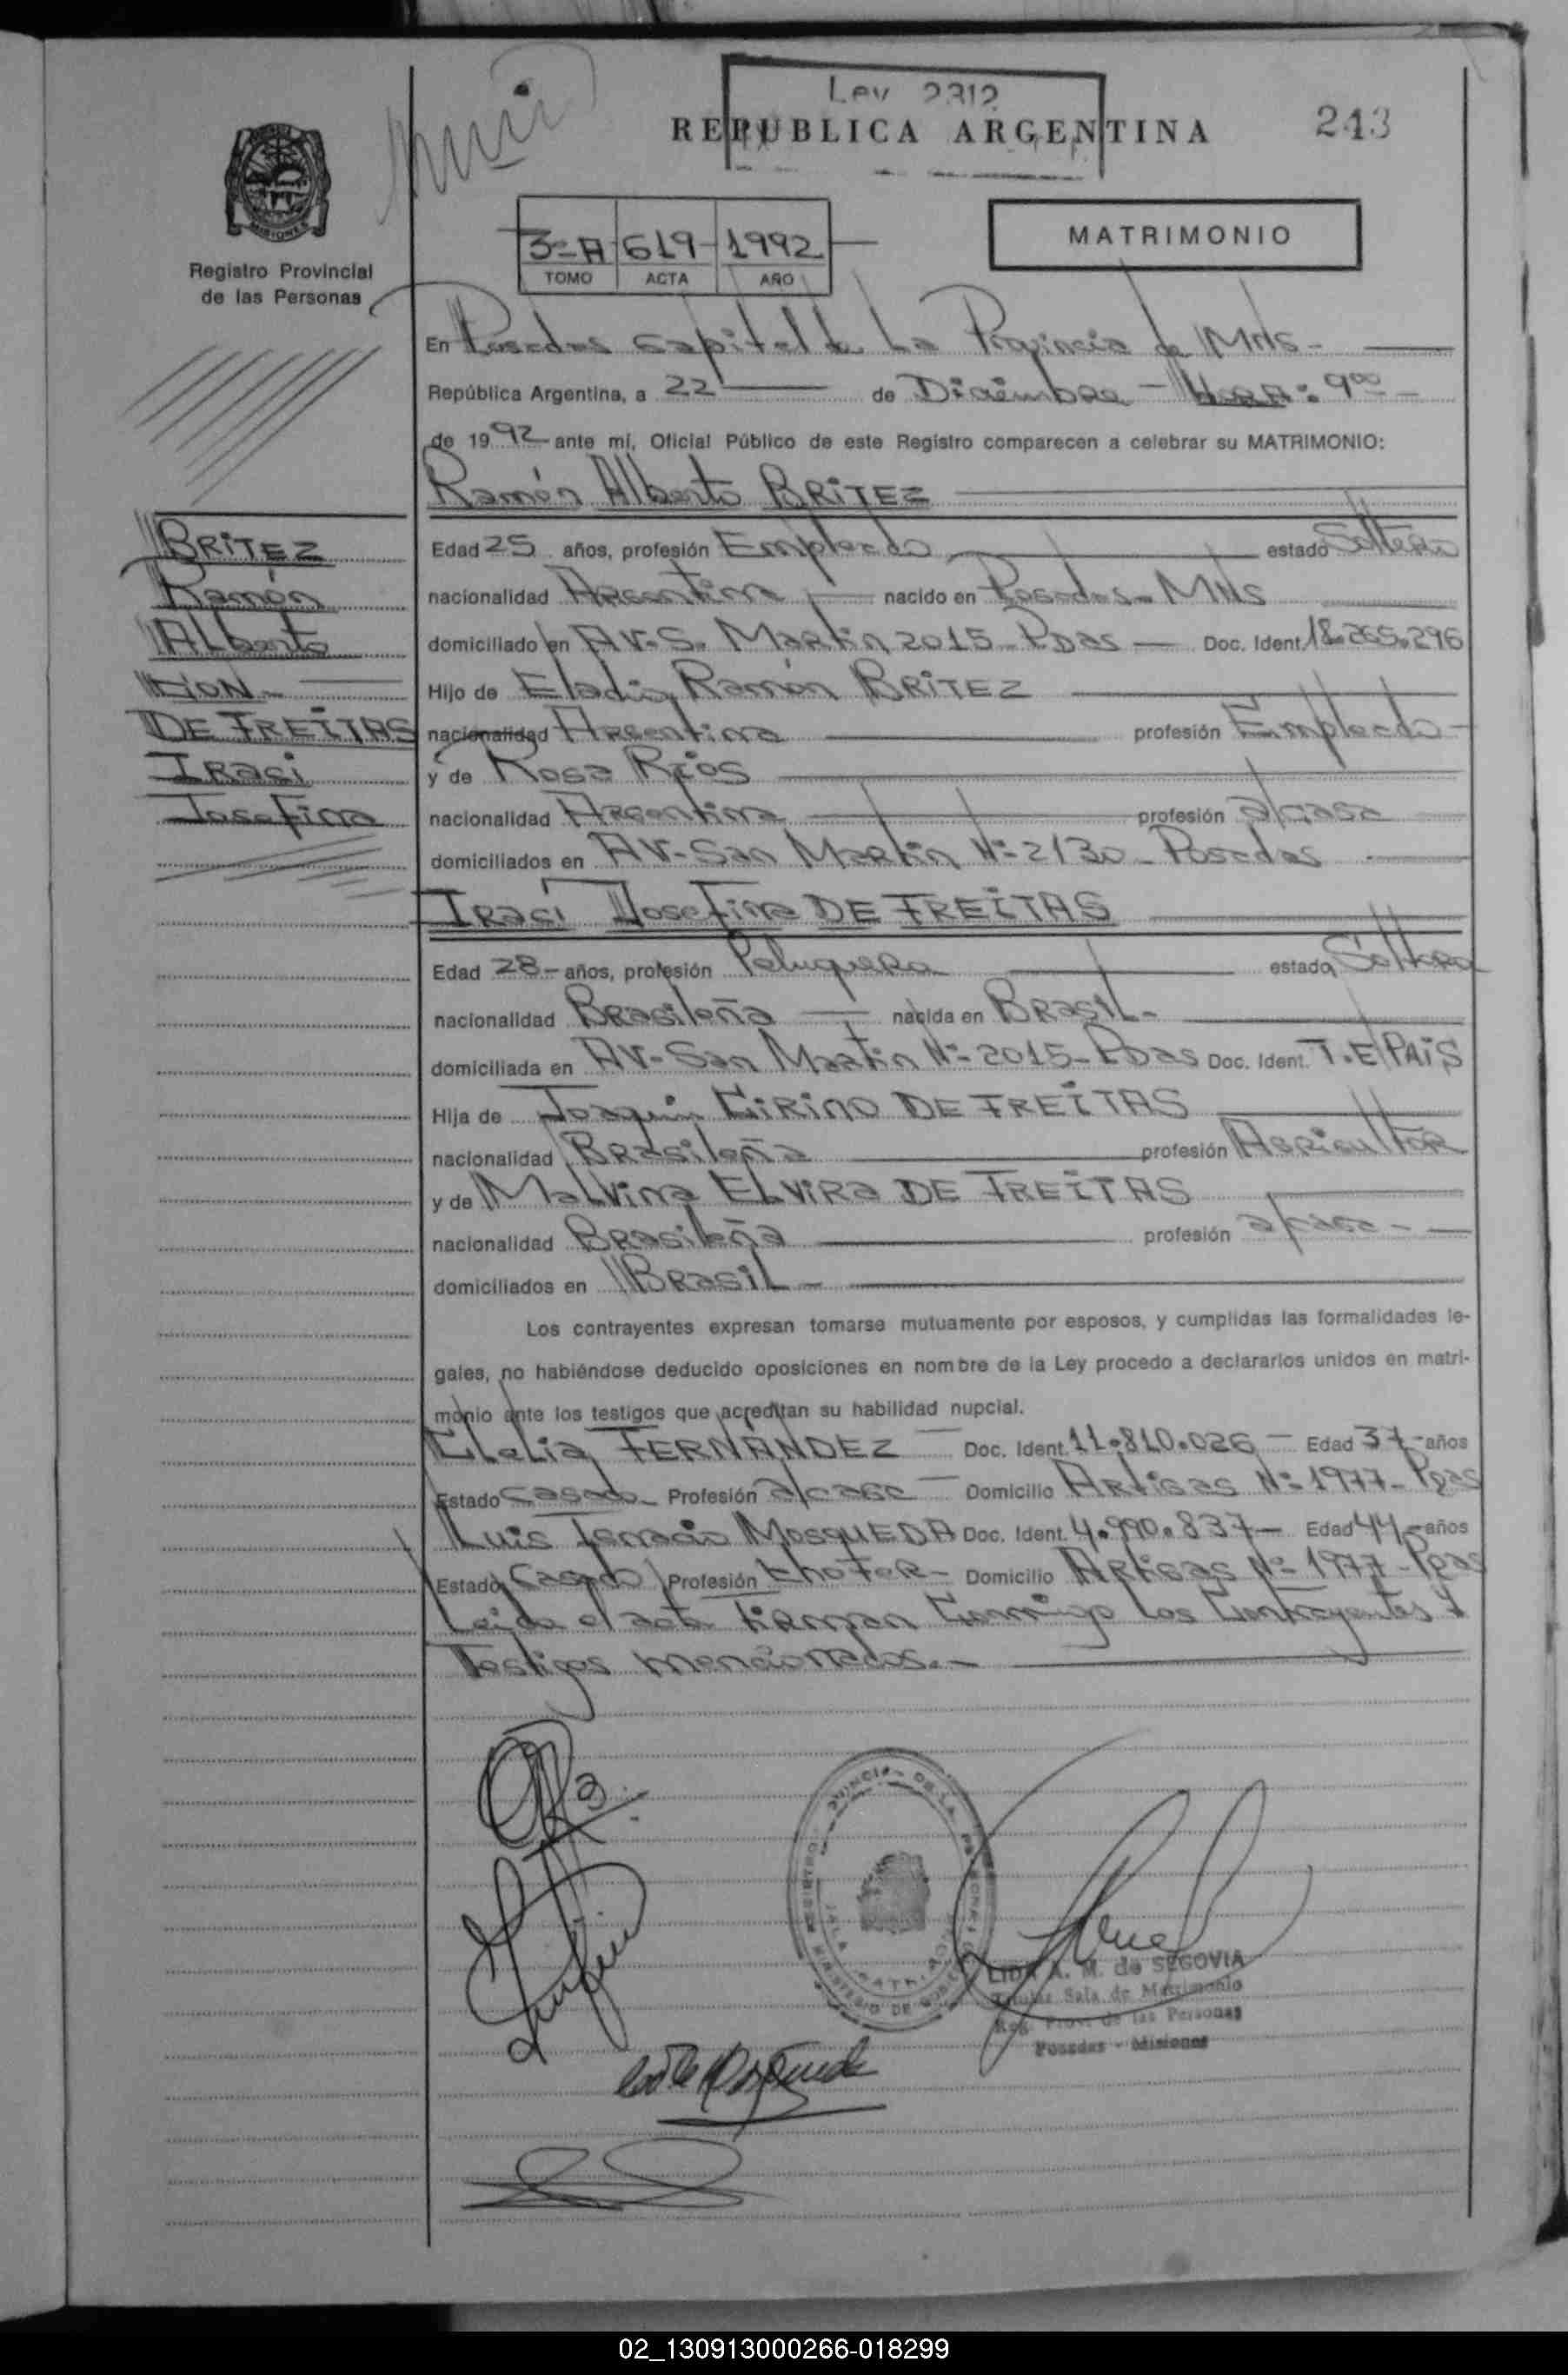 Ley 2312
REPUBLICA ARGENTINA
243
MISIONES
Registro Provincial
de las Personas
3º-A 619- 1992
TOMO ACTA AÑO
MATRIMONIO
En Posadas capital de La Provincia de Mnes-
República Argentina, a 22 de Diciembre - HORA: 9⁰⁰ -
de 1992 ante mí, Oficial Público de este Registro comparecen a celebrar su MATRIMONIO:
Ramón Alberto BRITEZ
BRITEZ
Ramón
Alberto
CON-
DE FREITAS
Iraci
Josefina
Edad 25 años, profesión Empleado estado Soltero
nacionalidad Argentina nacido en Posadas- Mnes
domiciliado en AV-S. Martín 2015- Pdas - Doc. Ident. 18.265.296
Hijo de Eladio Ramón BRITEZ
nacionalidad Argentina profesión Empleado-
y de Rosa Ríos
nacionalidad Argentina profesión a/casa
domiciliados en AV-San Martín Nº-2130- Posadas
Iraci Josefina DE FREITAS
Edad 28- años, profesión Peluquera estado Soltera
nacionalidad Brasileña nacida en Brasil-
domiciliada en AV-San Martín Nº-2015-Pdas Doc. Ident. T.E/PAÍS
Hija de Joaquin CIRINO DE FREITAS
nacionalidad Brasileña profesión Agricultor
y de Malvina ELVIRA DE FREITAS
nacionalidad Brasileña profesión a/casa-
domiciliados en Brasil-
Los contrayentes expresan tomarse mutuamente por esposos, y cumplidas las formalidades le-
gales, no habiéndose deducido oposiciones en nombre de la Ley procedo a declararlos unidos en matri-
monio ante los testigos que acreditan su habilidad nupcial.
Clelia FERNÁNDEZ - Doc. Ident. 11.810.026 - Edad 37- años
Estado Casado- Profesión a/casa - Domicilio Artigas Nº-1977- Pdas
Luis Ignacio MOSQUEDA Doc. Ident. 4.990.837- Edad 44- años
Estado Casado Profesión Chofer- Domicilio Artigas Nº-1977-Pdas
Leida el acta firman Conmigo Los Contrayentes y
Testigos mencionados.-
LIDA A. M. de SEGOVIA
Titular Sala de Matrimonio
Reg. Prov. de las Personas
Posadas - Misiones
02_130913000266-018299